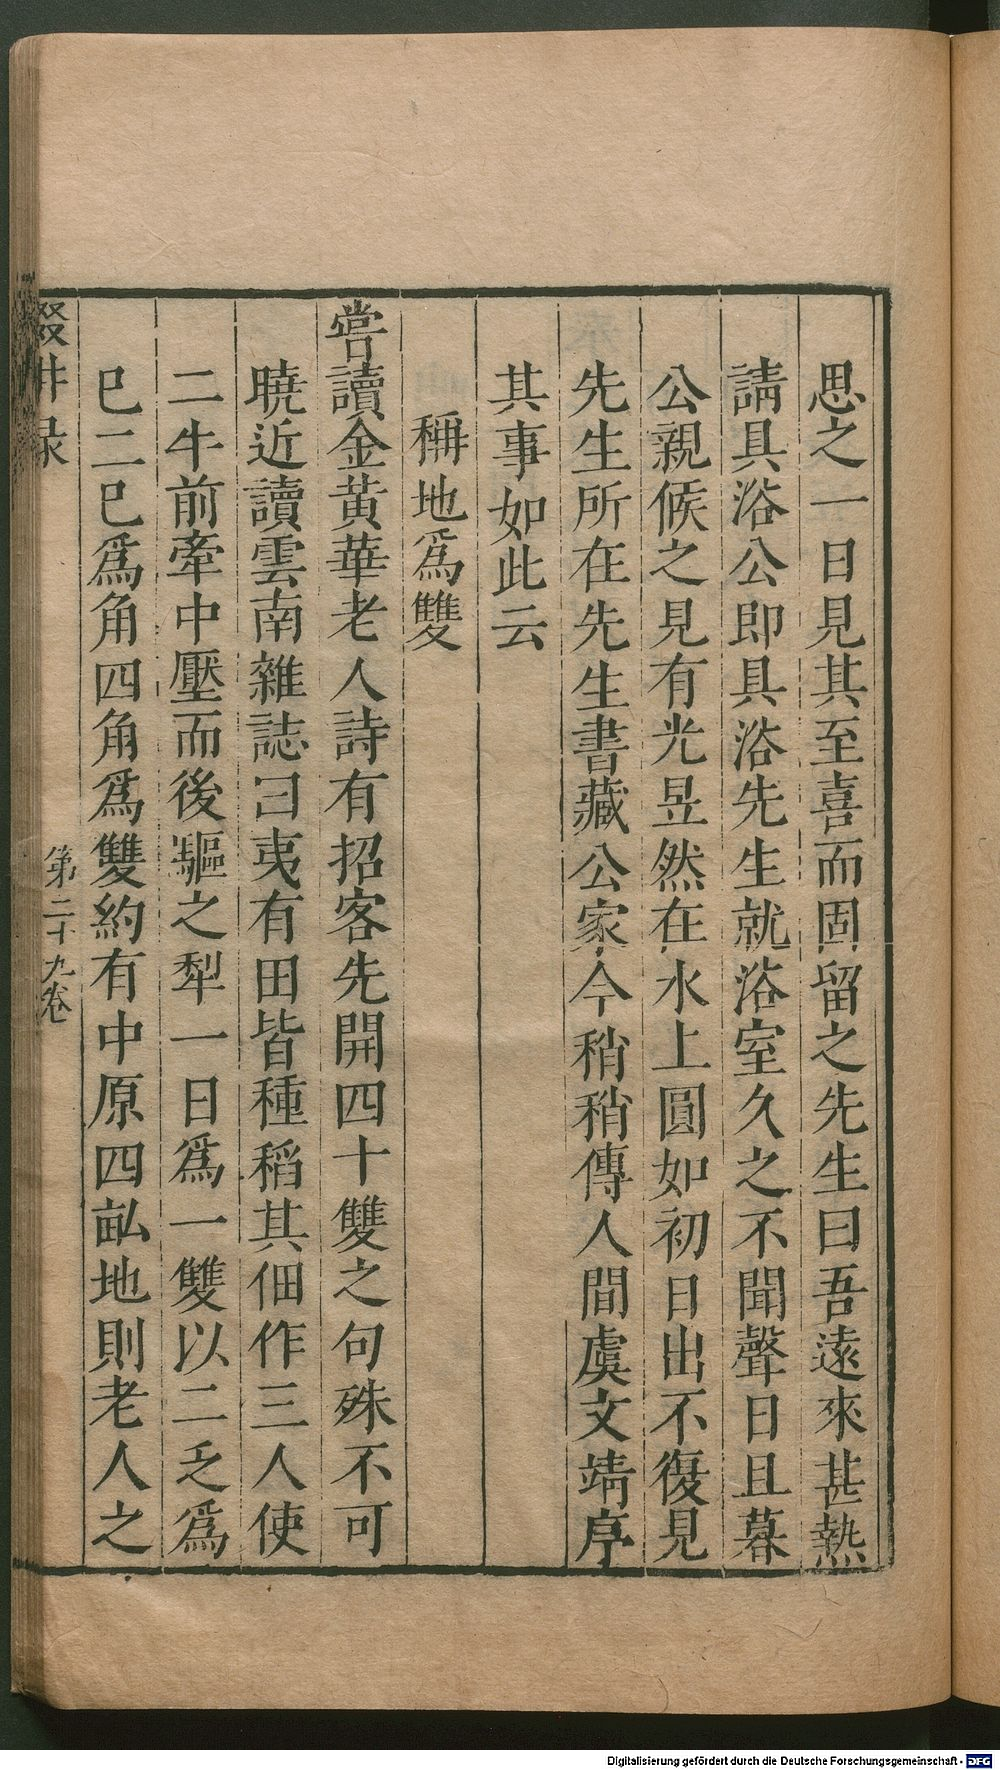 思之一日見其至喜而固留之先生曰吾遠來甚熱
請具浴公即具浴先生就浴室久之不聞聲日且暮
公親候之見有光昱然在水上圓如初日出不復見
先生所在先生書藏公家今稍稍傳人間虞文靖序
其事如此云
稱地爲雙
嘗讀金黃華老人詩有招客先開四十雙之句殊不可
曉近讀雲南雜誌曰夷有田皆種稻其佃作三人使
二牛前牽中壓而後驅之犁一日爲一雙以二乏爲
巳二巳爲角四角爲雙約有中原四畝地則老人之
輟耕录
第二十九卷
Digitalisierung gefördert durch die Deutsche Forschungsgemeinschaft - DFG